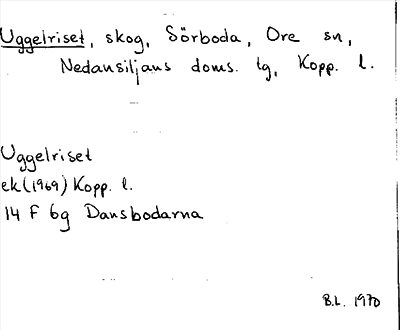 Uggelriset, skog, Sörboda, Ore sn,
Nedansiljans doms. tg, Kopp. l.
Uggelriset
ek(1969) Kopp. l.
14 F 6g Dansbodarna
B.L. 1970